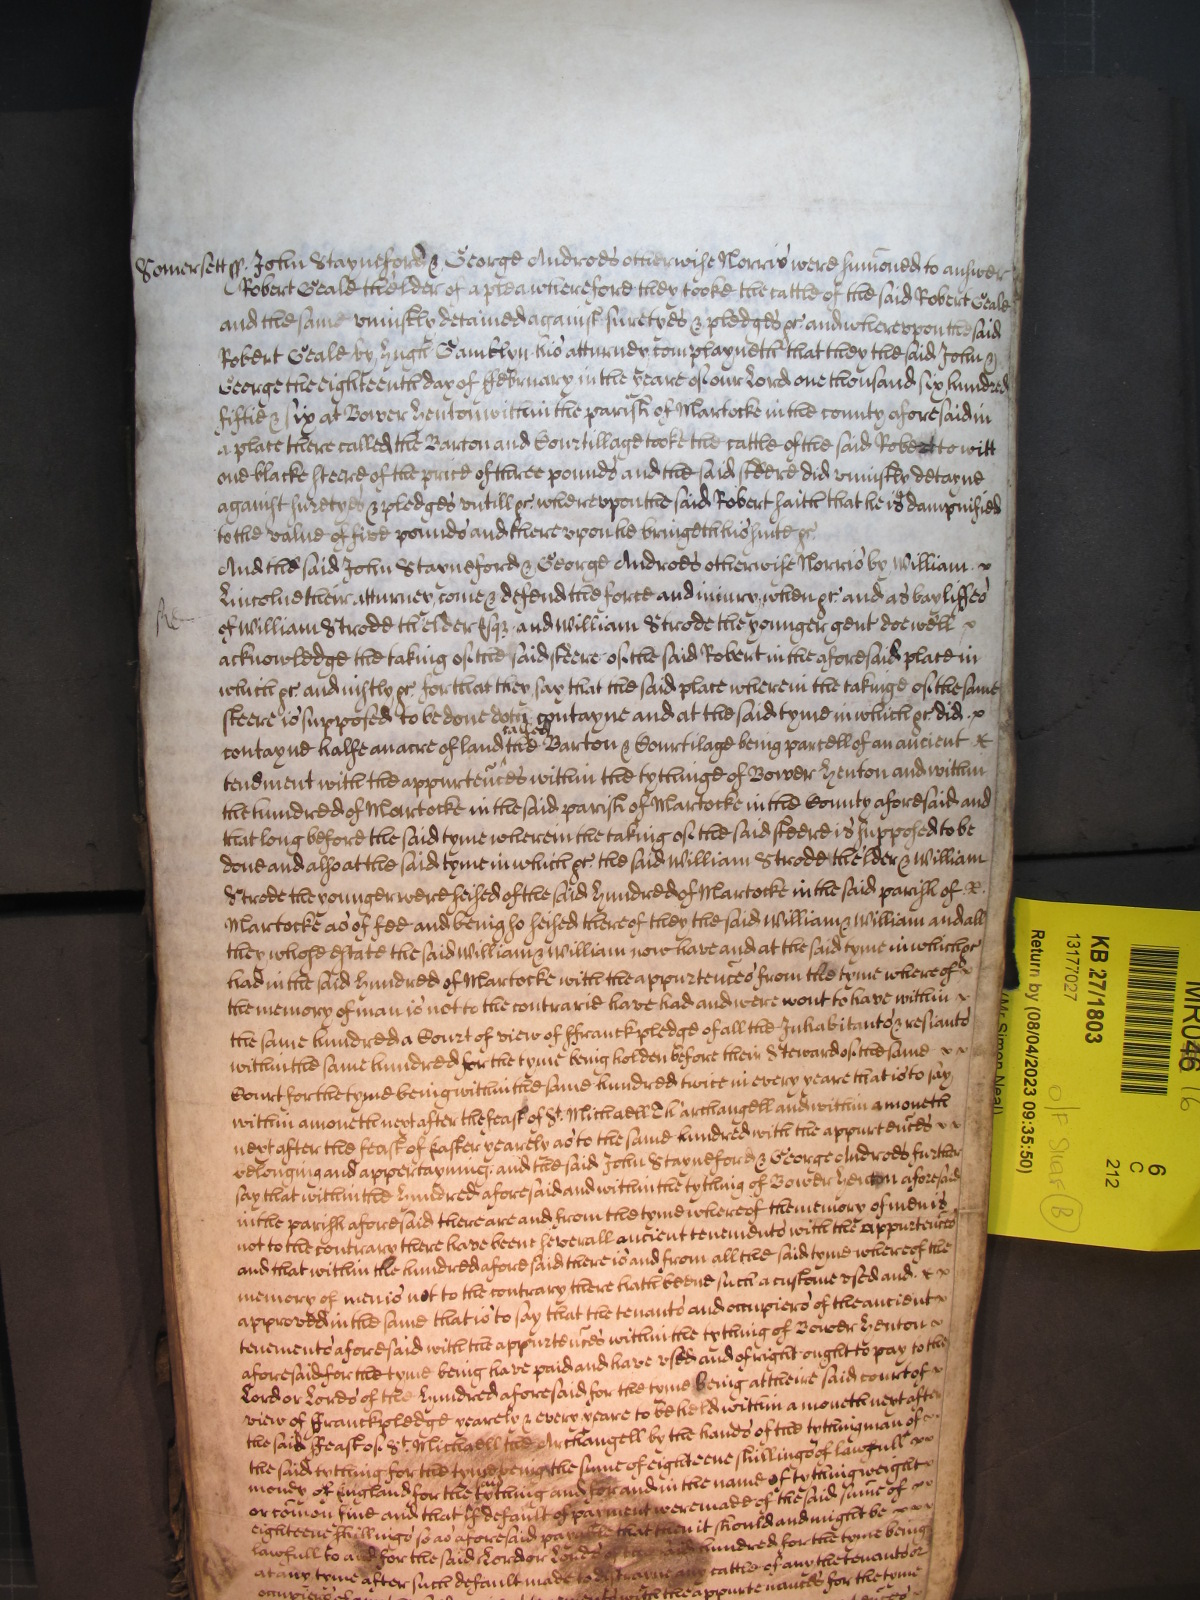 Somersett ss. John Stayneford & George Androes otherwise Norris were sumoned to answer
Robert Geale thelder of a plea wherefore they tooke the cattle of the said Robert Geale
and the same uniustly detained against suretyes & pledges &c. and whereupon the said
Robert Geale by Hugh Gamblyn his atturney complayneth that they the said John &
George the eighteenth day of ffebruary in the yeare of our Lord one thousand six hundred
fiftie & six at Bower Henton within the parish of Martocke in the county aforesaid in
a place there called the Barton and Courtillage tooke the cattle of the said Robert to witt
one blacke steere of the price of three pounds and the said steere did uniustly detayne
against suretyes & pledges untill &c. whereupon the said Robert saith that he is dampnified
to the value of five pounds and thereupon he bringeth his suite &c.
And the said John Stayneford & George Androes otherwise Norris by William
Lincolne their atturney come & defend the force and iniury when &c. and as bayliffes
of William Strode thelder Esqr. and William Strode the younger gent doe well
acknowledge the taking of the said steere of the said Robert in the aforesaid place in
which &c. and iustly &c. for that they say that the said place wherein the takinge of the same
steere is supposed to be done doth contayne and at the said tyme in which &c. did
contayne halfe an acre of land called the Barton & Courtilage being parcell of an ancient
tenement with the appurtences within the tythinge of Bower Henton and within
the hundred of Martocke in the said parish of Martocke in the County aforesaid and
that long before the said tyme wherein the taking of the said steere is supposed to be
done and alsoe at the said tyme in which &c. the said William Strode thelder & William
Strode the younger were seised of the said hundred of Martocke in the said parish of
Martocke as of fee and being so seised thereof they the said William & William and all
they whose estate the said William & William now have and at the said tyme in which &c.
had in the said hundred of Martocke with the appurtences from the tyme whereof
the memory of man is not to the contrarie have had and were wont to have within
the same hundred a Court of view of ffranckpledge of all the Inhabitants & resiants
within the same hundred for the tyme being holden before their Steward of the same
Court for the tyme being within the same hundred twice in every yeare that is to say
within a moneth next after the feast of St. Michaell Th'archangell and within a moneth
next after the feast of Easter yearely as to the same hundred with the appurtences
belonging and appertayning. and the said John Stayneford & George Androes further
say that within the hundred aforesaid and within the tything of Bower Henton aforesaid
in the parish aforesaid there are and from the tyme whereof the memory of men is
not to the contrary there have beene severall ancient tenements with the appurtences
and that within the hundred aforesaid there is and from all the said tyme whereof the
memory of men is not to the contrary there hath beene such a custome used and
approved in the same that is to say that the tenants and occupiers of the ancient
tenements aforesaid with the appurtences within the tything of Bower Henton
aforesaid for the tyme being have paid and have used and of right ought to pay to the
Lord or Lords of the hundred aforesaid for the tyme being at theire said court of
view of ffranckpledge yearely & every yeare to be held within a moneth next after
the said ffeast of St. Michaell the Archangell by the hands of the tythingman of
the said tything for the tyme being the sume of eighteene shillings of lawfull
money of England for the tything and for and in the name of tythingweight
or comon fine and that if default of payment were made of the said sume of
eighteene shillings so as aforesaid payable that then it should and might be
lawfull to and for the said Lord or Lords of the said hundred for the tyme being
at any tyme after such default made to distrayne any cattle of any the tenants or
with the appurtenances for the tyme
KB 27/1803
13177027
Return by (08/04/2023 09:35:50)
(Mr Simon Neal)
6
C
212
O/F Shelf (B)